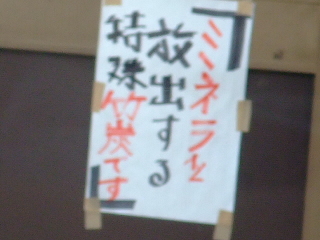 ミネラル
放出する
特殊竹炭です